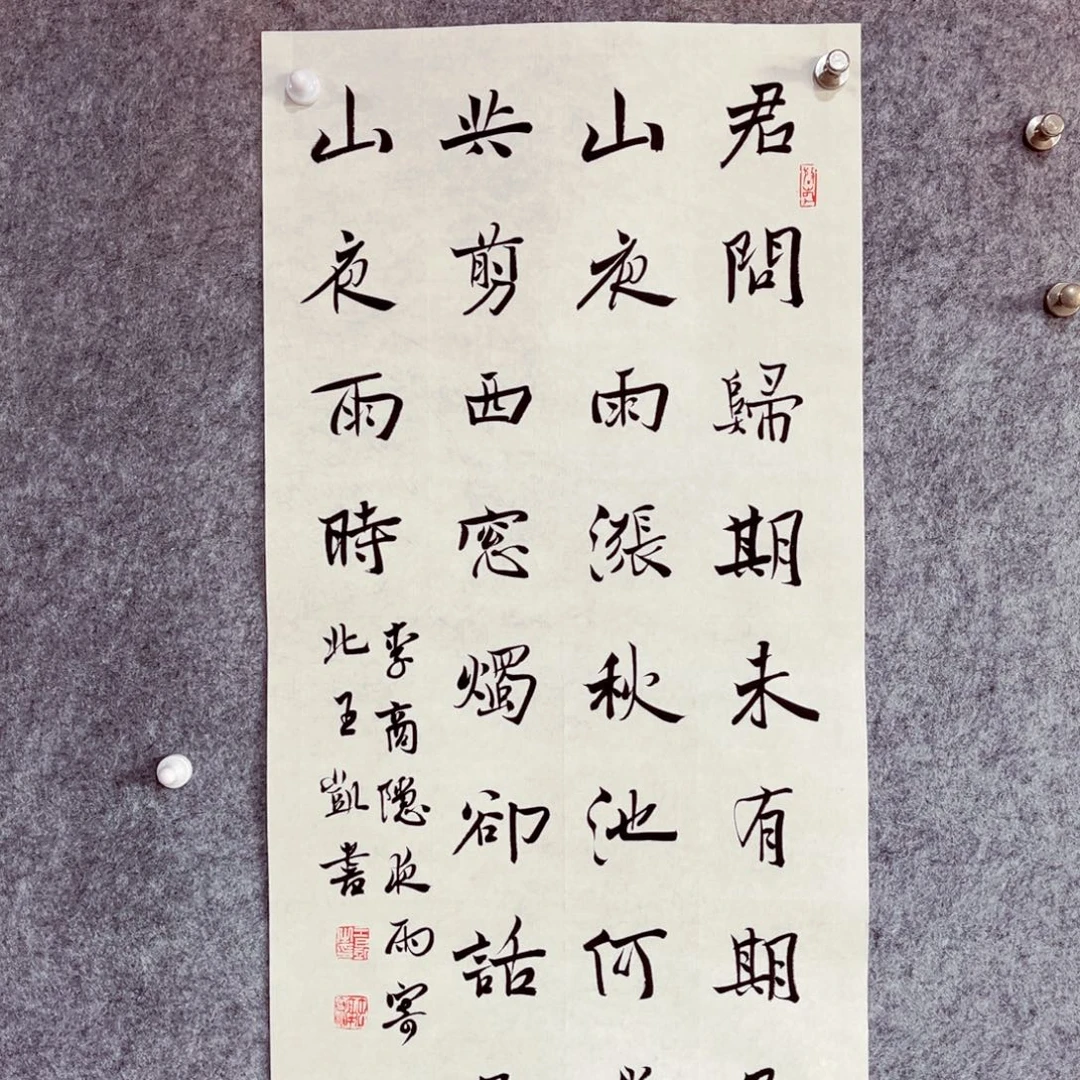 君問歸期未有期
山夜雨漲秋池何
共剪西窓燭卻話
山夜雨時
李商隱夜雨寄
北王凱書